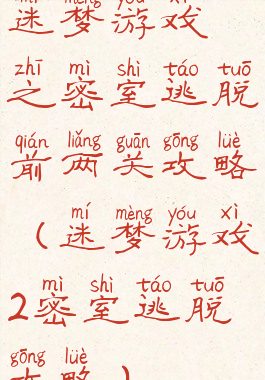 mí mèng yóu xì
迷梦游戏
zhī mì shì táo tuō
之密室逃脱
qián liǎng guān gōng lüè
前两关攻略
mí mèng yóu xì
(迷梦游戏
mì shì táo tuō
2密室逃脱
gōng lüè
攻略)